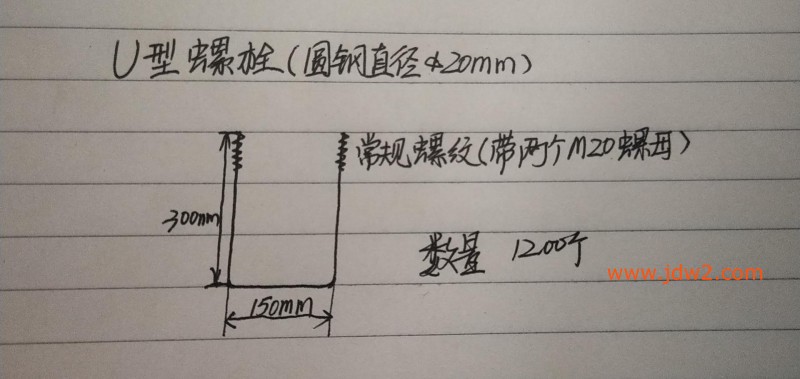 U型螺栓(圆钢直径Φ20mm)
常规螺纹(带两个M20螺母)
300mm
数量 1200个
www.jdw2.com
150mm